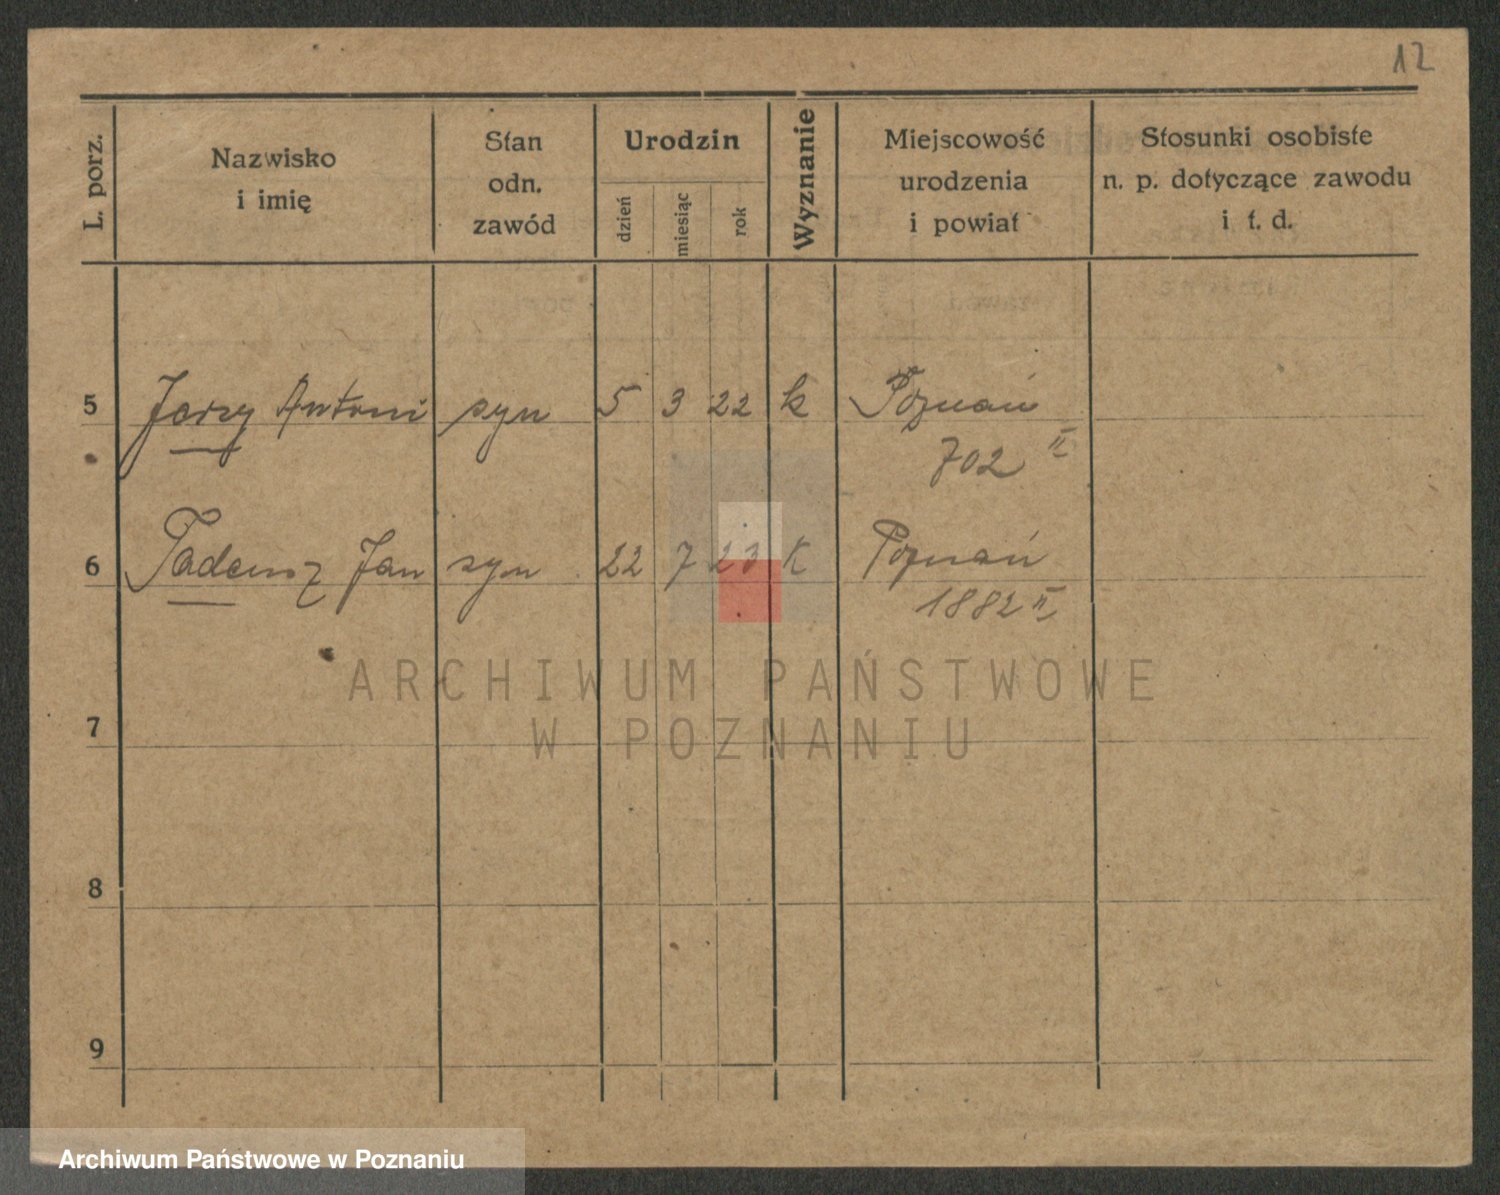 12
L. porz.
Nazwisko
i imię
Stan
odn.
zawód
Urodzin
dzień
miesiąc
rok
Wyznanie
Miejscowość
urodzenia
i powiat
Stosunki osobiste
n. p. dotyczące zawodu
i t. d.
5 Jerzy Antoni syn 5 3 22 k Poznań
702 II
6 Tadeusz Jan syn 22 7 23 k Poznań
1882 II
ARCHIWUM PAŃSTWOWE
W POZNANIU
7
8
9
Archiwum Państwowe w Poznaniu